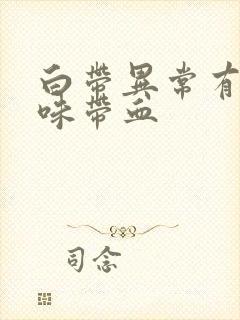 白带異常有
味带血
司念